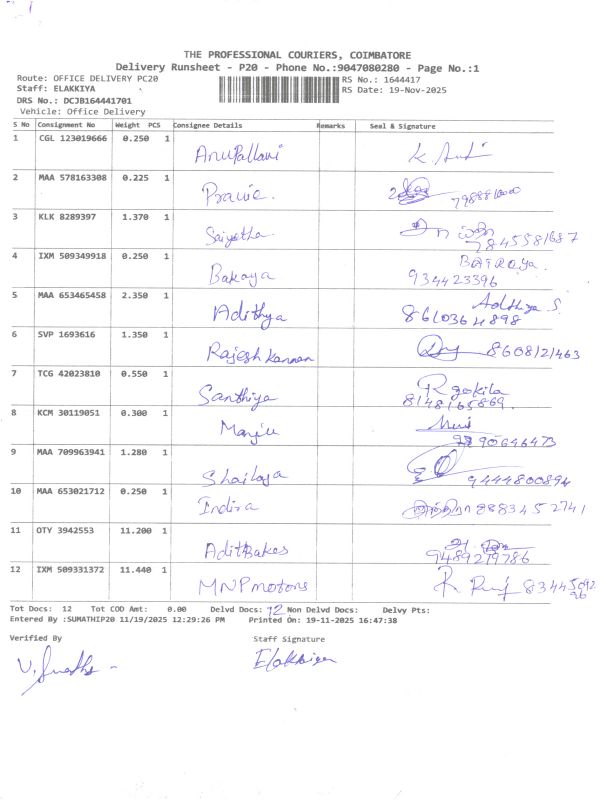 THE PROFESSIONAL COURIERS, COIMBATORE
Delivery Runsheet - P20 - Phone No.:9047080280 - Page No.:1
Route: OFFICE DELIVERY PC20 RS No.: 1644417
Staff: ELAKKIYA RS Date: 19-Nov-2025
DRS No.: DCJB164441701
Vehicle: Office Delivery
S No Consignment No Weight PCS Consignee Details Remarks Seal & Signature
1 CGL 123019666 0.250 1 AnuPallavi
2 MAA 578163308 0.225 1
3 KLK 8289397 1.370 1
7845581687
4 IXM 509349918 0.250 1 Bakaya
934423396
5 MAA 653465458 2.350 1 Adithya Adithya S.
8610364898
6 SVP 1693616 1.350 1 Rajesh Kannan 8608121463
7 TCG 42023810 0.550 1 Santhiya R gokila
8148165869.
8 KCM 30119051 0.300 1 Manju
9 MAA 709963941 1.280 1 Shailaja
9444800894
10 MAA 653021712 0.250 1 Indira 8883452741
11 OTY 3942553 11.200 1 AditBakes
9489279786
12 IXM 509331372 11.440 1 MNP motors
Tot Docs: 12 Tot COD Amt: 0.00 Delvd Docs: 12 Non Delvd Docs: Delvy Pts:
Entered By :SUMATHIP20 11/19/2025 12:29:26 PM Printed On: 19-11-2025 16:47:38
Verified By Staff Signature
Elakkiya